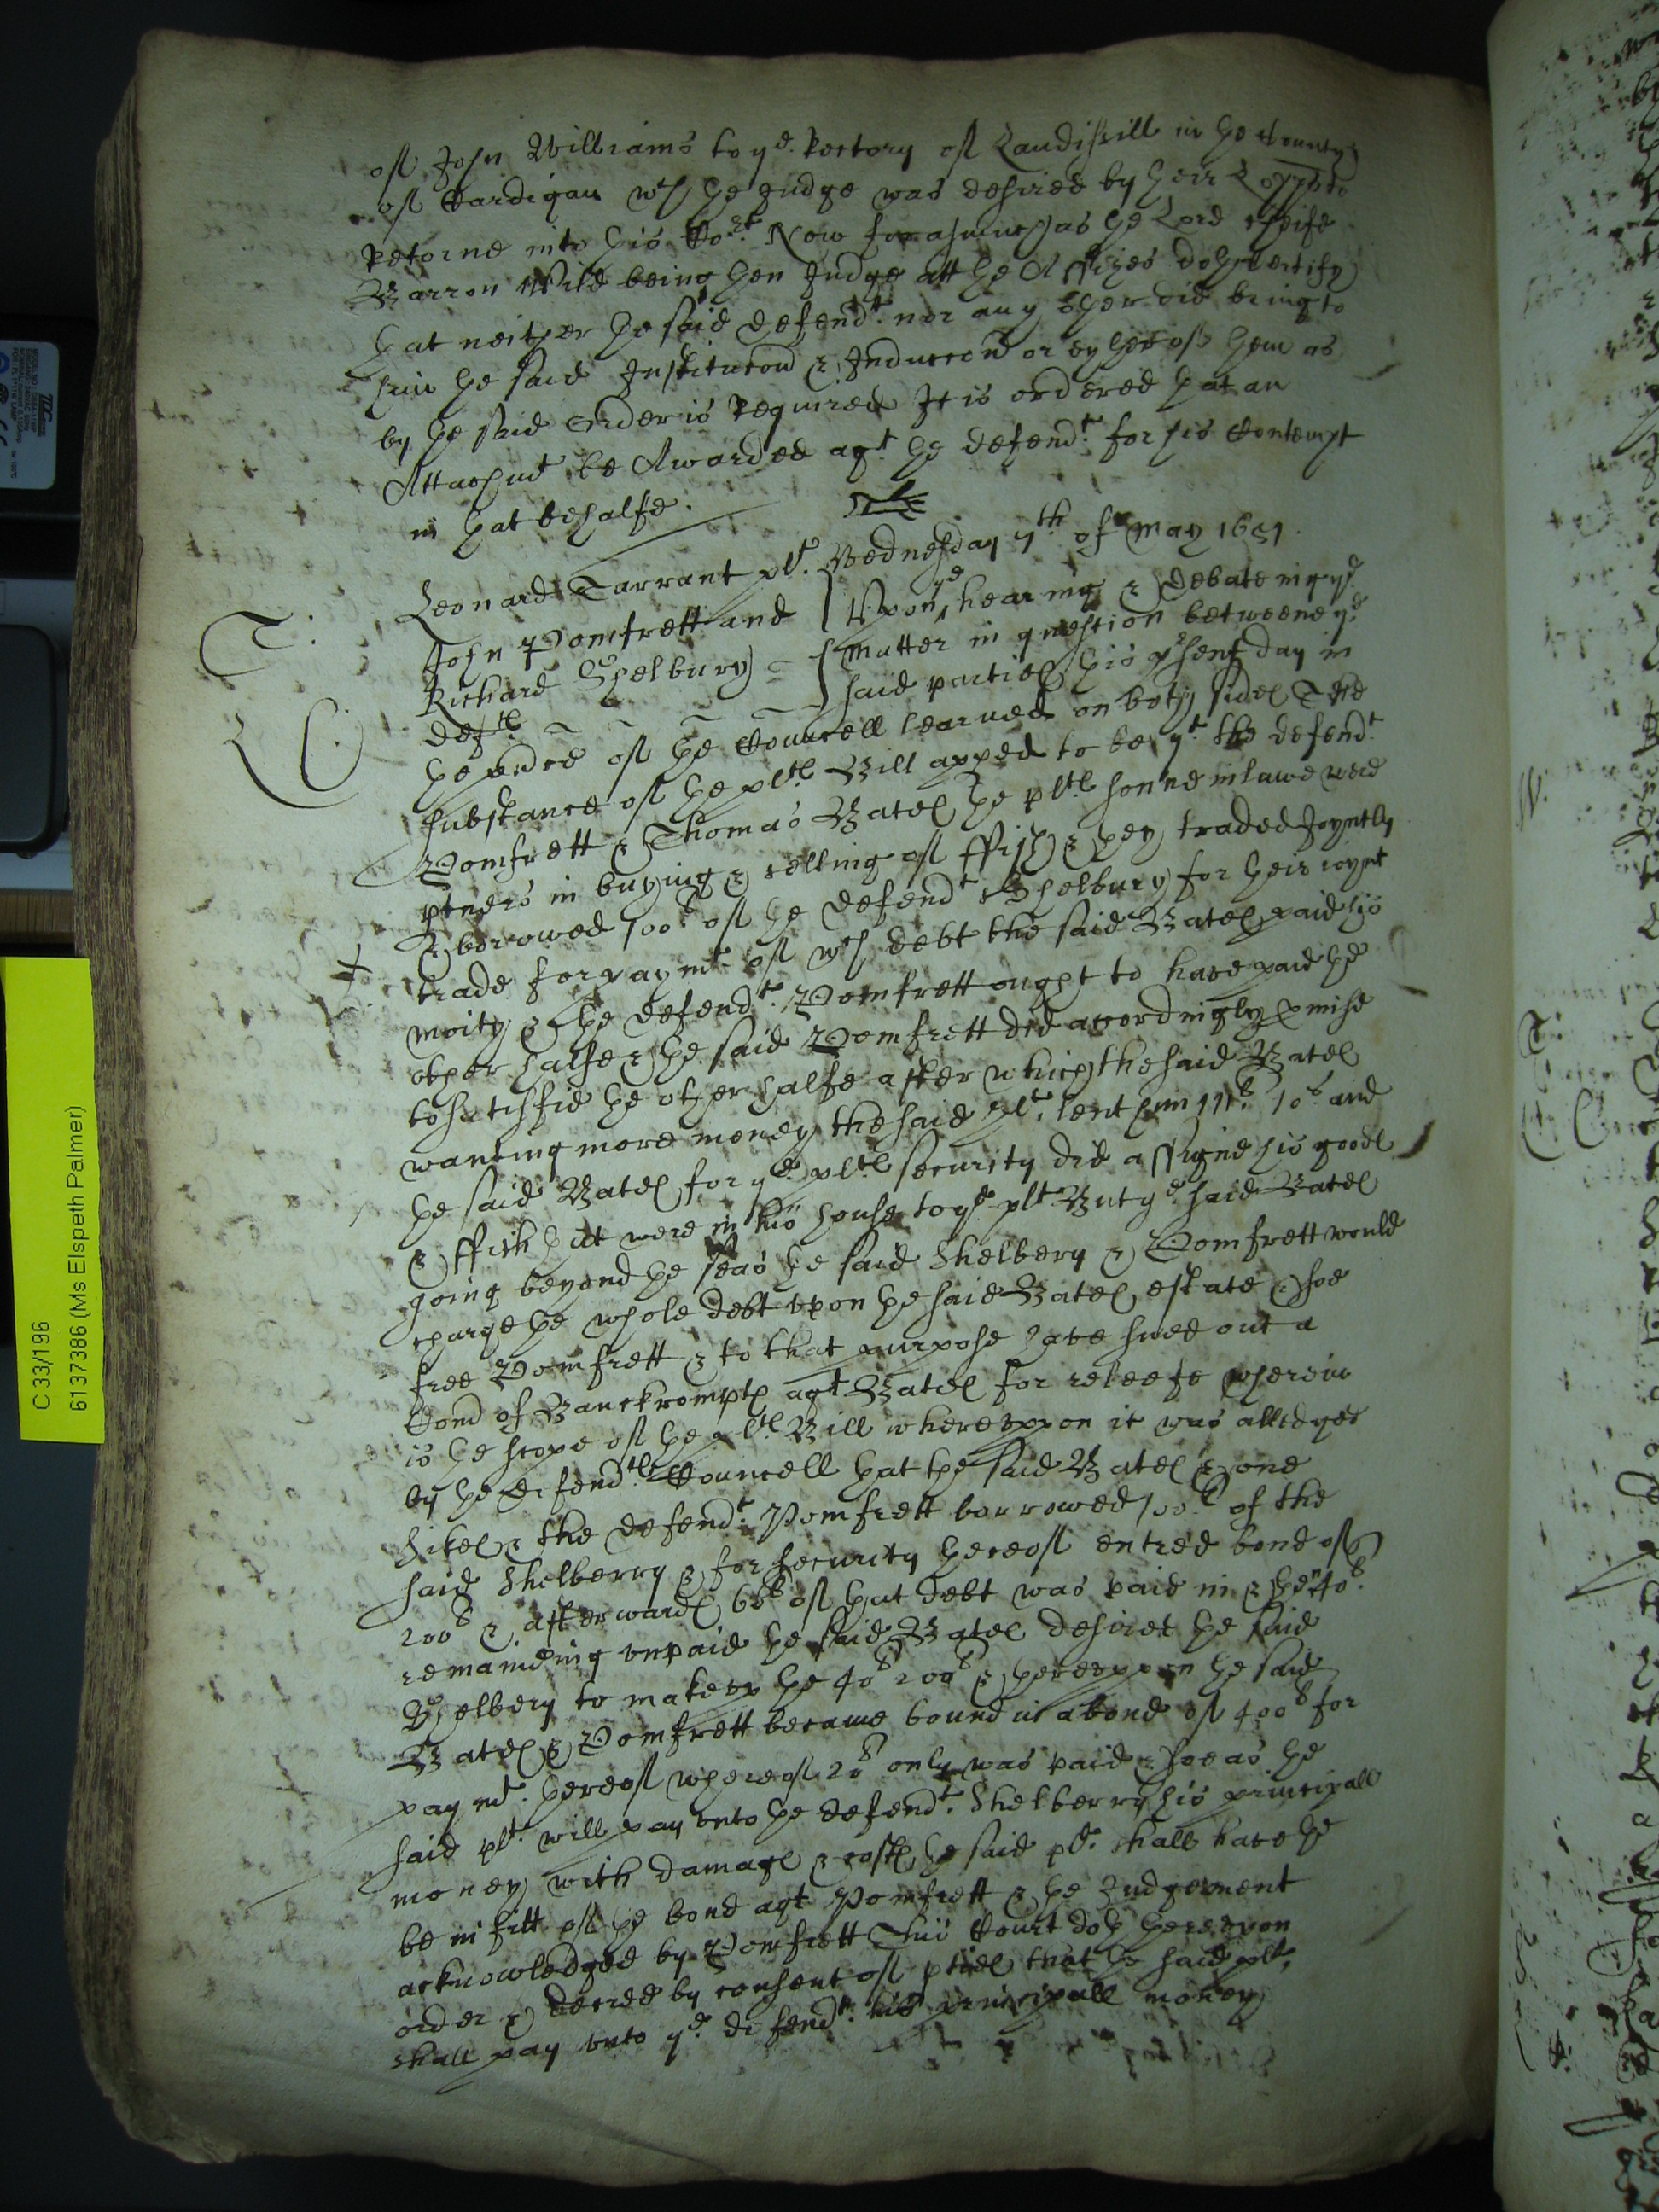 of John Williams to ye Rectory of Landissill in the County
of Cardigan wch the Judge was desired by their Lopps to
Retorne into this Cort Now forasmuch as the Lord Cheife
Barron Wild being then Judge att the Assizes doth certify
that neither the said defendt nor any other did bring to
him the said Institucon & Induccon or eyther of them as
by the said Order is Required It is ordered that an
Attachmt be Awarded agt the defendt for his Contempt
in that behalfe.
T:
C
Leonard Tarrant plt.
John Pomfrett and
Richard Shelbury
defts
Wednesday 7th of May 1651.
Upon ye hearing & debateing ye
matter in question betweene ye
said parties this psent day in
the pndce of the Councell learned on both sides The
substance of the plts Bill apped to be yt the defendt
Pomfrett & Thomas Bates the plts sonne in lawe were
ptners in buying & selling of ffish & they traded Joyntly
& borrowed 100l of the defendt Shelbury for their ioynt
trade for paymt of wch debt the said Bates paid his
moity & the defendt Pomfrett ought to have paid the
other halfe & the said Pomfrett did accordingly pmise
to satisfie the other halfe after which the said Bates
wanting more money the said plt. lent him 111l 10s and
the said Bates for ye plts security did assigne his goods
& ffish that were in his house to ye plt But ye said Bates
going beyond the seas the said Shelbery & Pomfrett would
charge the whole debt upon the said Bates estate & soe
free Pomfrett & to that purpose have sued out a
Comd of Banckrompts agt Bates for releefe wherein
is the scope of the plts Bill whereuppon it was alledged
by the defendts Councell that the said Bates & one
Sikes & the defendt Pomfrett borrowed 100l of the
said Shelberry & for security thereof entred bond of
200l & afterwards 60l of that debt was paid in & the 40l
remaineing unpaid the said Bates desired the said
Shelbery to make up the 40l 200l & thereuppon the said
Bates & Pomfrett became bound in a bond of 400l for
paymt thereof whereof 20l only was paid & soe as the
said plt. will pay unto the defendt Shelberry his principall
money with damages & costs the said plt. shall have the
beinfitt of the bond agt Pomfrett & the Judgement
acknowledged by Pomfrett This Court doth thereupon
order & decree by consent of pties that the said plt.
shall pay unto ye defendt his principall money
C 33/196
6137386 (Ms Elspeth Palmer)